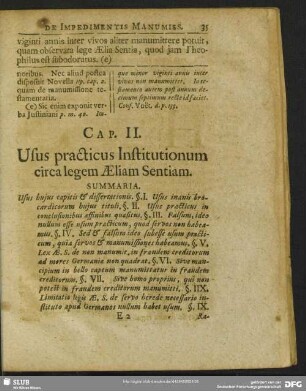 DE IMPEDIMENTIS MANUMISS. 35
viginti annis inter vivos aliter manumittere potuit,
quam observata lege Ælia Sentia, quod jam Theo-
philus est subodoratus. (e)
noribus. Nec aliud postea
disposuit Novella 119. cap. 2.
quem de manumissione te-
stamentaria.
(e) Sic enim exponit ver-
ba Justiniani p. m. 48.
que minor viginti annis inter
vivos
stamento autem post annum de-
cimum septimum recte id faciet.
Conf. Voet. d. p. 135.
CAP. II.
Usus practicus Institutionum
circa legem Æliam Sentiam.
SUMMARIA.
Usus hujus capitis & dissertationis. §. I. Usus inanis bro-
cardicorum hujus tituli, §. II. Usus practicus in
conclusionibus affinibus quæsitus, §. III. Falsum, ideo
nullum esse usum practicum, quod servos non habea-
mus, §. IV. Sed & falsum ideo subesse usum practi-
cum, quia servos & manumissiones habeamus, §. V.
Lex Æ. S. de non manumitt. in fraudem creditorum
ad mores Germaniæ non quadrat, §. VI. Sive man-
cipium in bello captum manumittatur in fraudem
creditorum, §. VII. Sive homo proprius, qui non
potest in fraudem creditorum manumitti, §. IIX.
Limitatio legis Æ. S. de servo herede necessario in-
stituto apud Germanos nullum habet usum. §. IX.
E 2
Ra-
SLUB
Wir führen Wissen.
DFG
gefördert von der
Deutschen Forschungsgemeinschaft